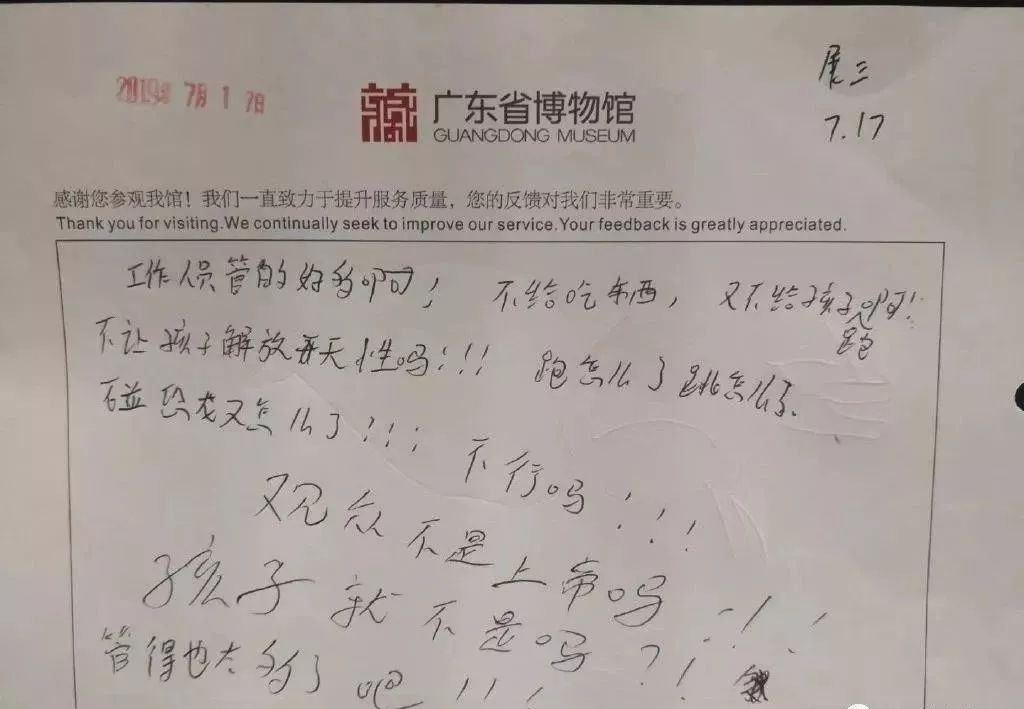 2019年7月17日
展三
7.17
广东省博物馆
GUANGDONG MUSEUM
感谢您参观我馆！我们一直致力于提升服务质量，您的反馈对我们非常重要。
Thank you for visiting.We continually seek to improve our service.Your feedback is greatly appreciated.
工作人员管的好多啊！ 不给吃东西，又不给孩子跑啊！
不让孩子解放天性吗！！！ 跑怎么了跳怎么了.
碰恐龙又怎么了！！！ 不行吗！！！
观众不是上帝吗！！！
孩子就不是吗？！
管得也太多了吧！！！